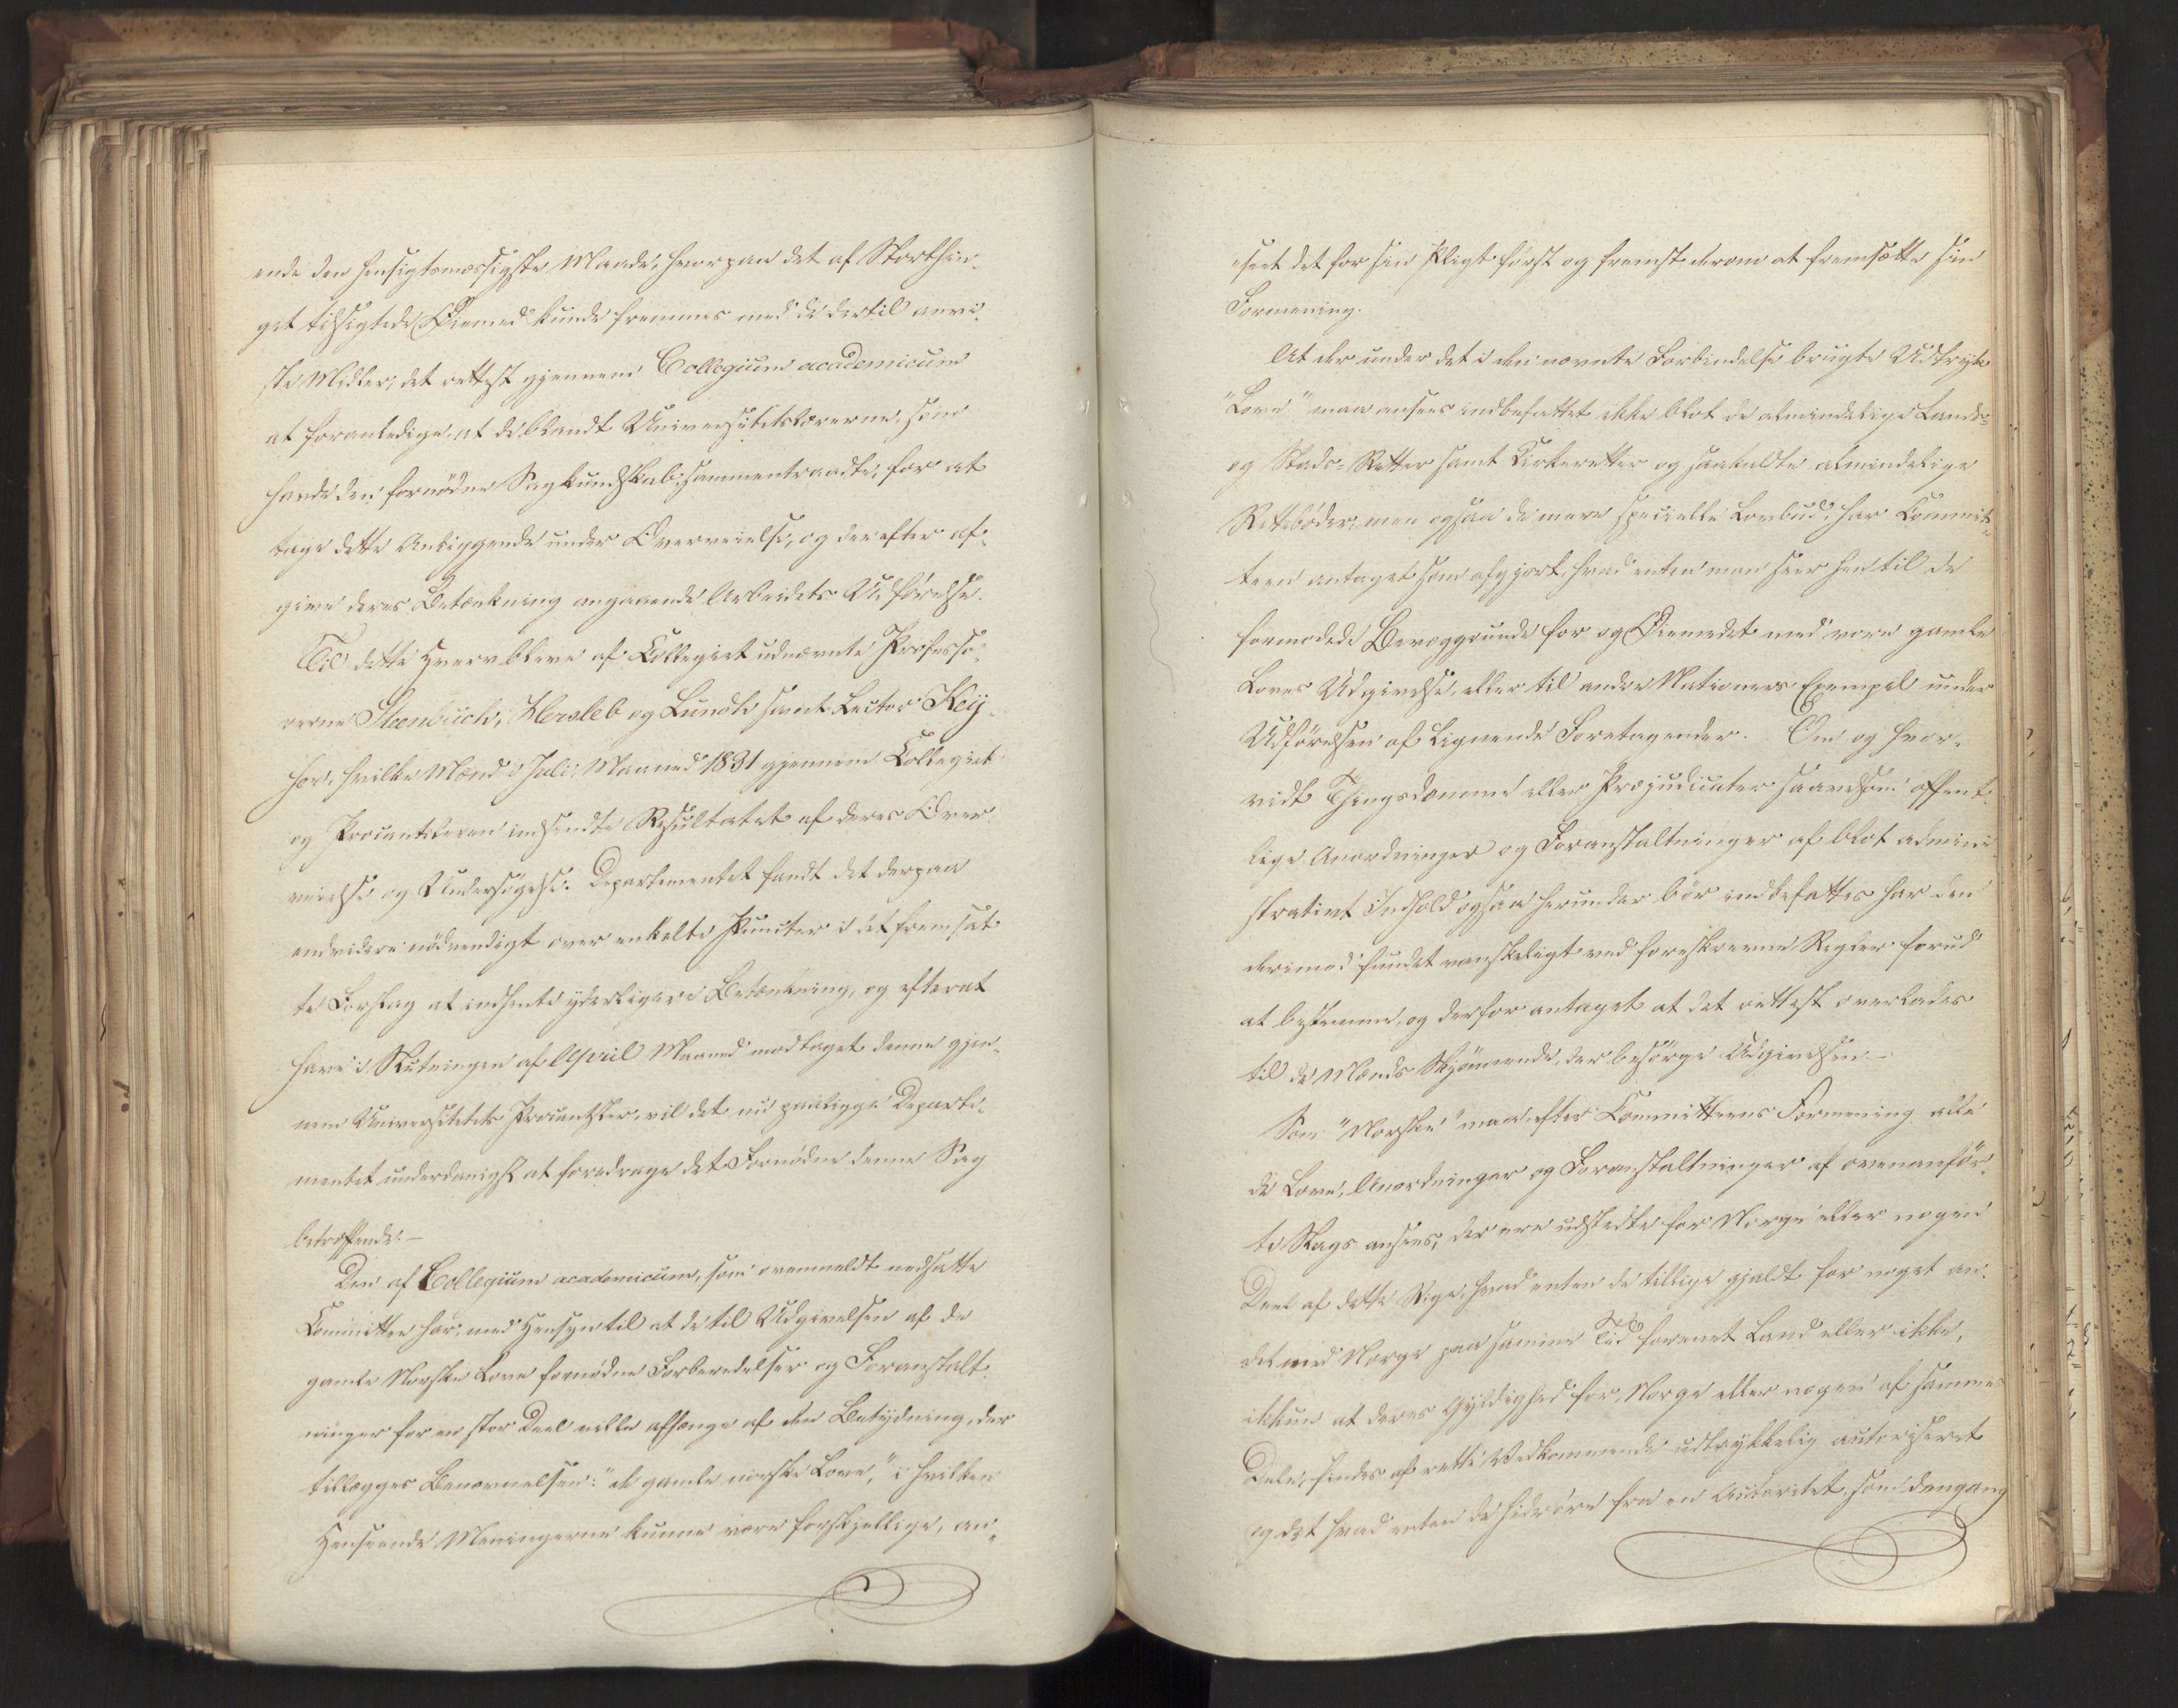 ende den hensigtsmæssigste Maade, hvorpaa det af Storthin-
get tilsigtede Øiemed kunde fremmes med de dertil anvi-
ste Midler, det rettest gjennem Collegium academicum
at foranledige, at de blandt Universitetslærerne, som
havde den fornødne Sagkundskab, sammentraadte, for at
tage dette Anliggende under Overveielse, og derefter af-
give deres Betænkning angaaende Arbeidets Udførelse.
Til dette Hverv bleve af Collegiet udnævnte Professo-
rerne Steenbuch, Hersleb og Lundh samt Lector Key-
ser, hvilke Mænd i Juli Maaned 1831 gjennem Collegiet
og Procantsleren indsendte Resultatet af deres Over-
veielse og Undersøgelse. Departementet fandt det derpaa
endvidere nødvendigt over enkelte Puncter i det fremsat-
te Forslag at indhente yderligere Betænkning, og efterat
have i Slutningen af April Maaned modtaget denne gjen-
nem Universitetets Procantsler, vil det nu paaligge Departe-
mentet underdanigst at foredrage det Fornødne denne Sag
betræffende.-
Den af Collegium academicum, som ovenmeldt nedsatte
Committee har, med Hensyn til at de til Udgivelsen af de
gamle Norske Love fornødne Forberedelser og Foranstalt-
ninger for en stor Deel ville afhænge af den Betydning, der
tillægges Benævnelsen: "de gamle norske Love," i hvilken
Henseende Meningerne kunne være forskjellige, an-
seet det for sin Pligt først og fremst derom at fremsætte sin
Formening.
At der under det i den nævnte Forbindelse brugte Udtryk
"Love" maa ansees indbefattet ikke blot de almindelige Lands-
og Stads-Retter samt Kirkeretter og saakaldte almindelige
Retsbøder, men ogsaa de mere specielle Lovbud, har Commit-
teen antaget som afgjort, hvad enten man seer hen til de
formodede Bevæggrunde for og Øiemedet med vore gamle
Loves Udgivelse, eller til andre Nationers Exempel under
Udførelsen af lignende Foretagender. Om og hvor-
vidt Thingsdomme eller Præjudicater saavelsom offent-
lige Anordninger og Foranstaltninger af blot admini-
strativt Indhold ogsaa herunder bør indbefattes har den
derimod fundet vanskeligt ved foreskrevne Regler forud
at bestemme, og derfor antaget at det rettest overlades
til de Mænds Skjønnende, der besørge Udgivelsen.-
Som "Norske" maa efter Committeens Formening alle
de Love, Anordninger og Foranstaltninger af ovenanfør-
te Slags ansees, der ere udstedte for Norge eller nogen
Deel af dette Rige, hvad enten de tillige gjaldt for noget an-
det med Norge paa samme Tid forenet Land eller ikke,
ikkun at deres Gyldighed for Norge eller nogen af sammes
Dele, findes af rette Vedkommende udtrykkelig autoriseret
og det hvad enten de hidrøre fra en Autoritet, som dengang